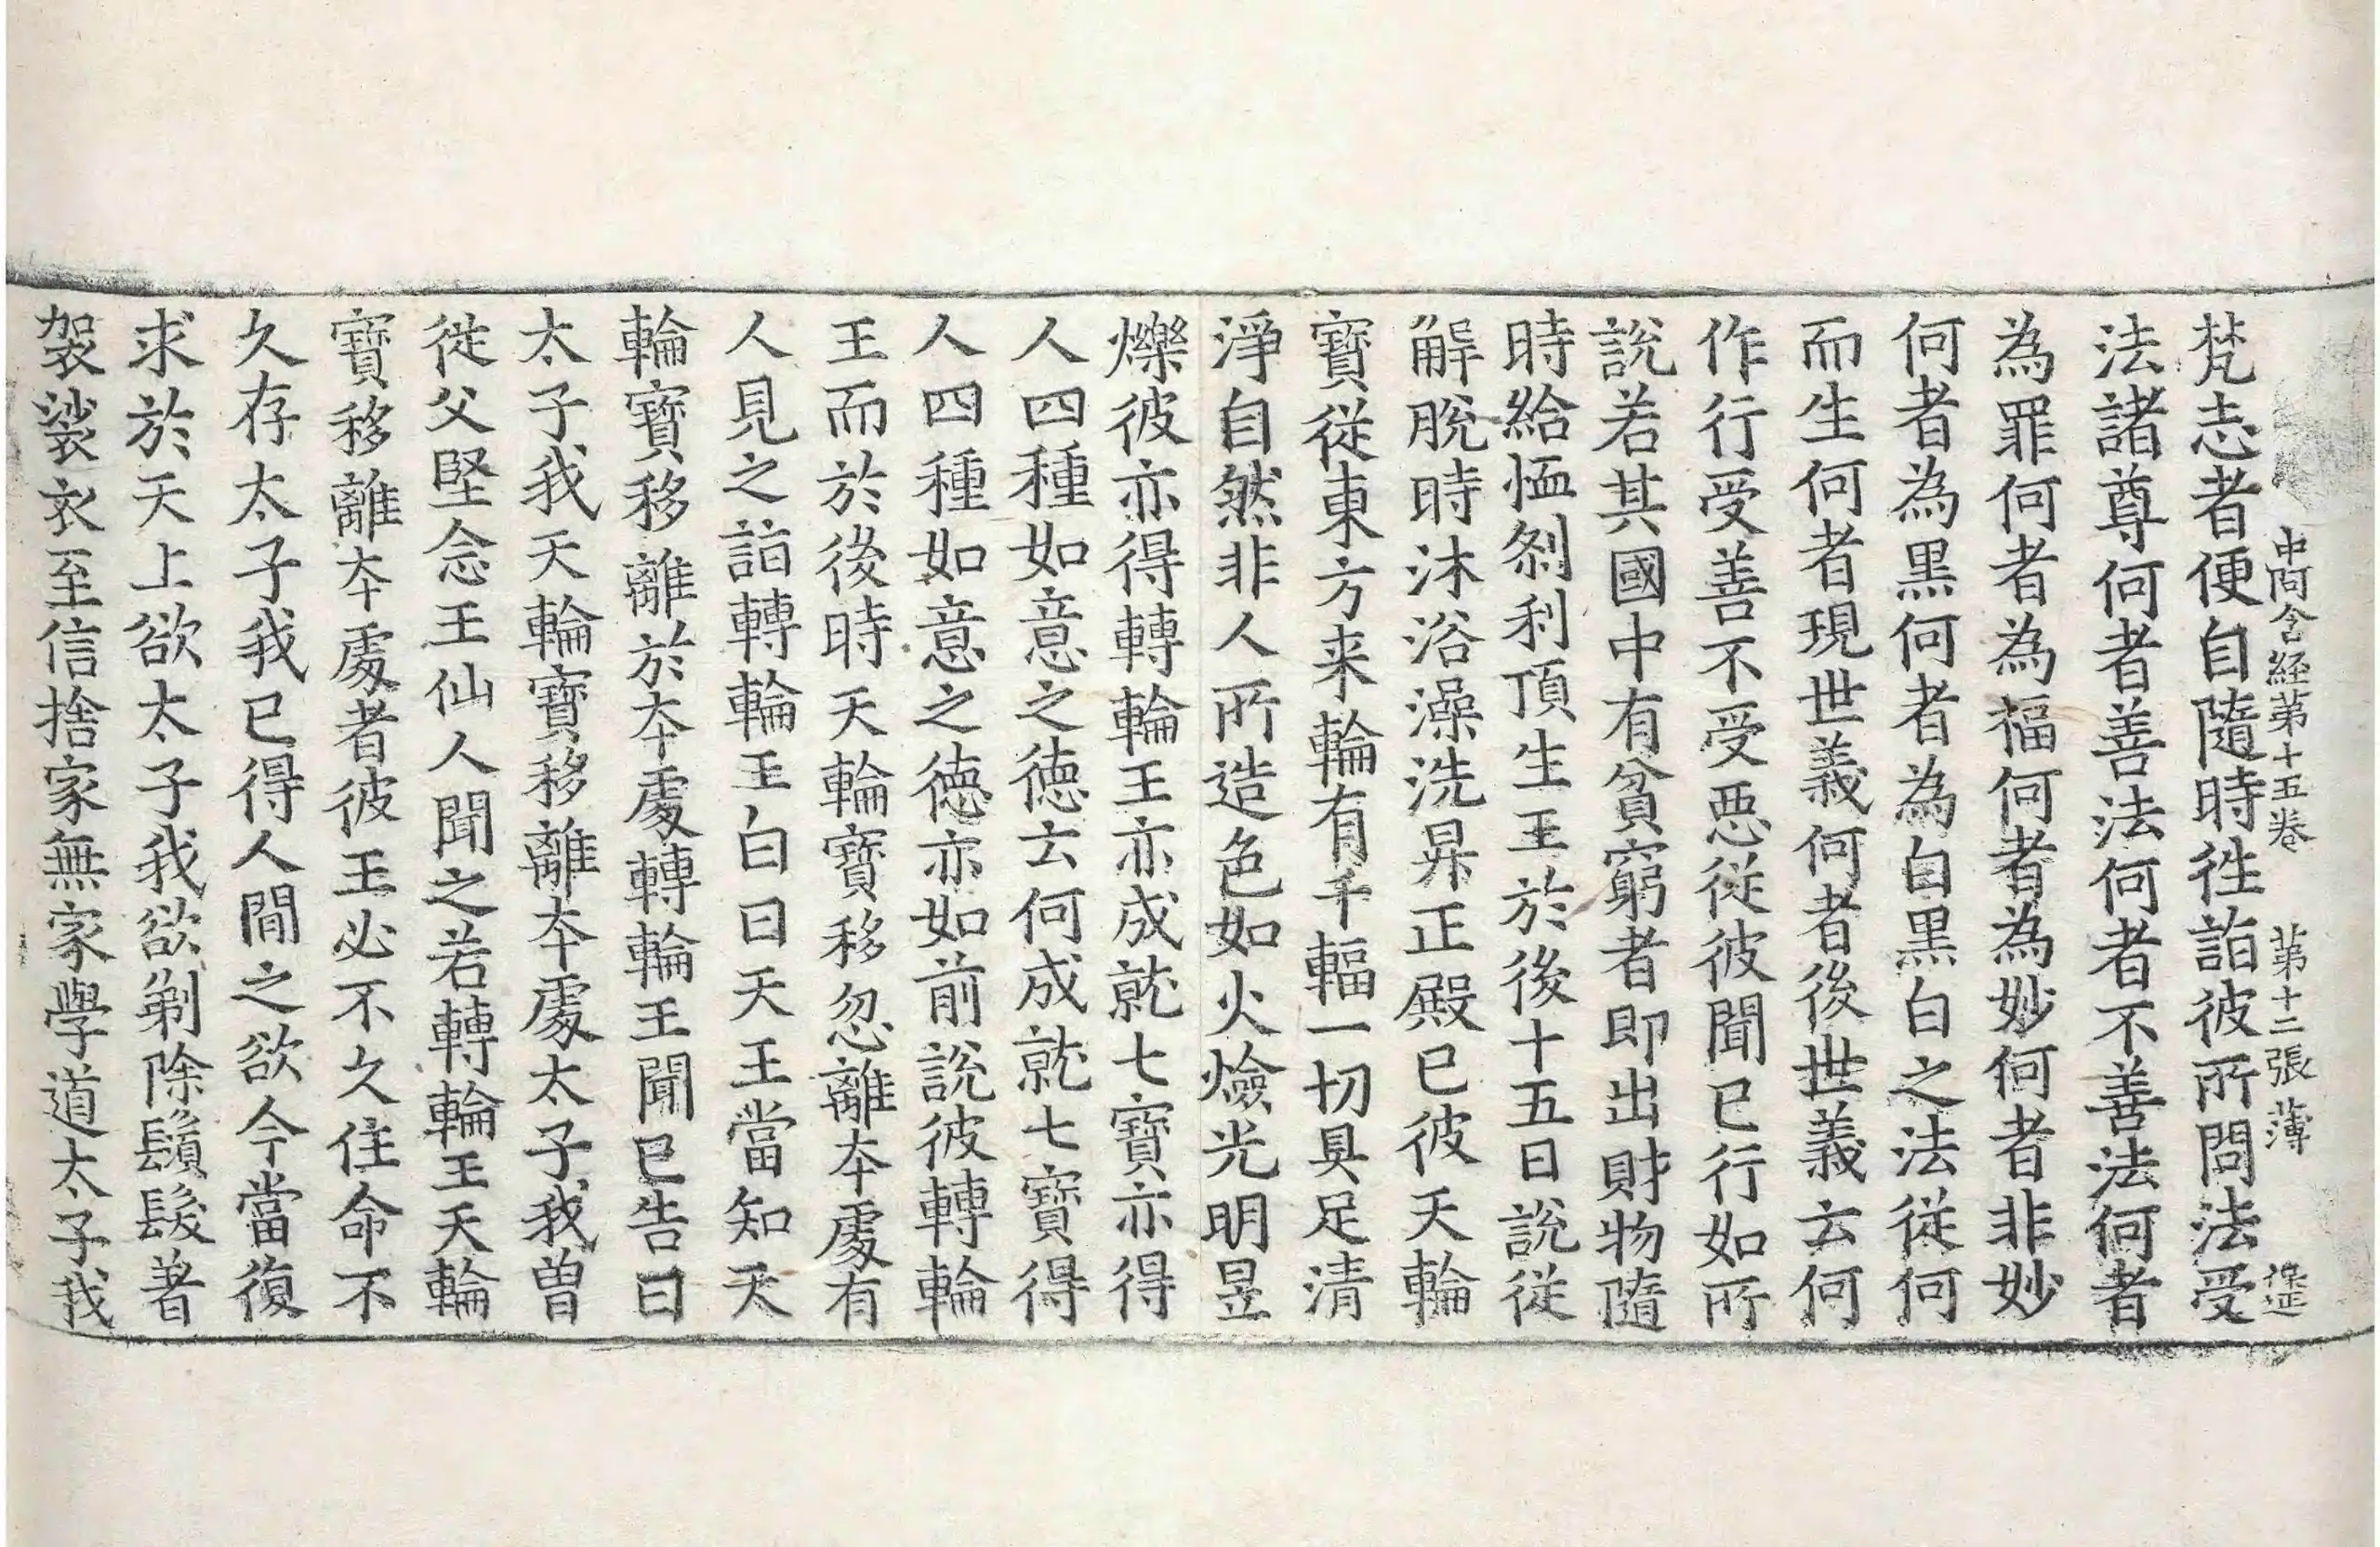 中阿含經第十五卷 第十二張 薄
梵志者便自隨時徃詣彼所問法受
法諸尊何者善法何者不善法何者
為罪何者為福何者為妙何者非妙
何者為黒何者為白黒白之法從何
而生何者現世義何者後世義云何
作行受善不受惡從彼聞已行如所
說若其國中有貧窮者即出財物隨
時給恤刹利頂生王於後十五日說從
解脫時沐浴澡洗昇正殿已彼天輪
寶從東方来輪有千輻一切具足清
淨自然非人所造色如火燄光明昱
爍彼亦得轉輪王亦成就七寶亦得
人四種如意之徳云何成就七寶得
人四種如意之徳亦如前說彼轉輪
王而於後時天輪寶移忽離夲處有
人見之詣轉輪王白曰天王當知天
輪寶移離於夲處轉輪王聞已告曰
太子我天輪寶移離夲處太子我曽
從父堅念王仙人聞之若轉輪王天輪
寶移離夲處者彼王必不久住命不
久存太子我已得人間之欲今當復
求於天上欲太子我欲剃除鬚髮著
袈裟衣至信捨家無家學道太子我